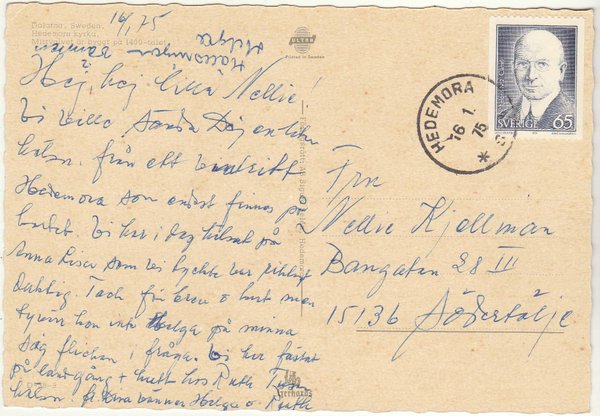 14/1 75
Dalarna, Sweden,
Hedemora kyrka.
Mittskeppet är byggt på 1400-talet
Helge
Hälsningar
Hej, hej lilla Nellie!
Vi ville sända Dig en liten
hälsn. från ett
Hedemora som endast finnes på
kortet. Vi har i dag hälsat på
Anna Lisa som vi tyckte var riktigt
Tack för brev o kort men
tyvärr kan inte Helga på minna
sig flickan i fråga. Vi har fästat
på landgång + hos Ruth
hälsn. fr. Dina vänner Helge o. Ruth
ULTRA
Printed in Sweden
Gerhards
HEDEMORA
16 1 75
SVERIGE 65
Fru
Nellie Kjellman
Bangatan 28 III
15136 Södertälje